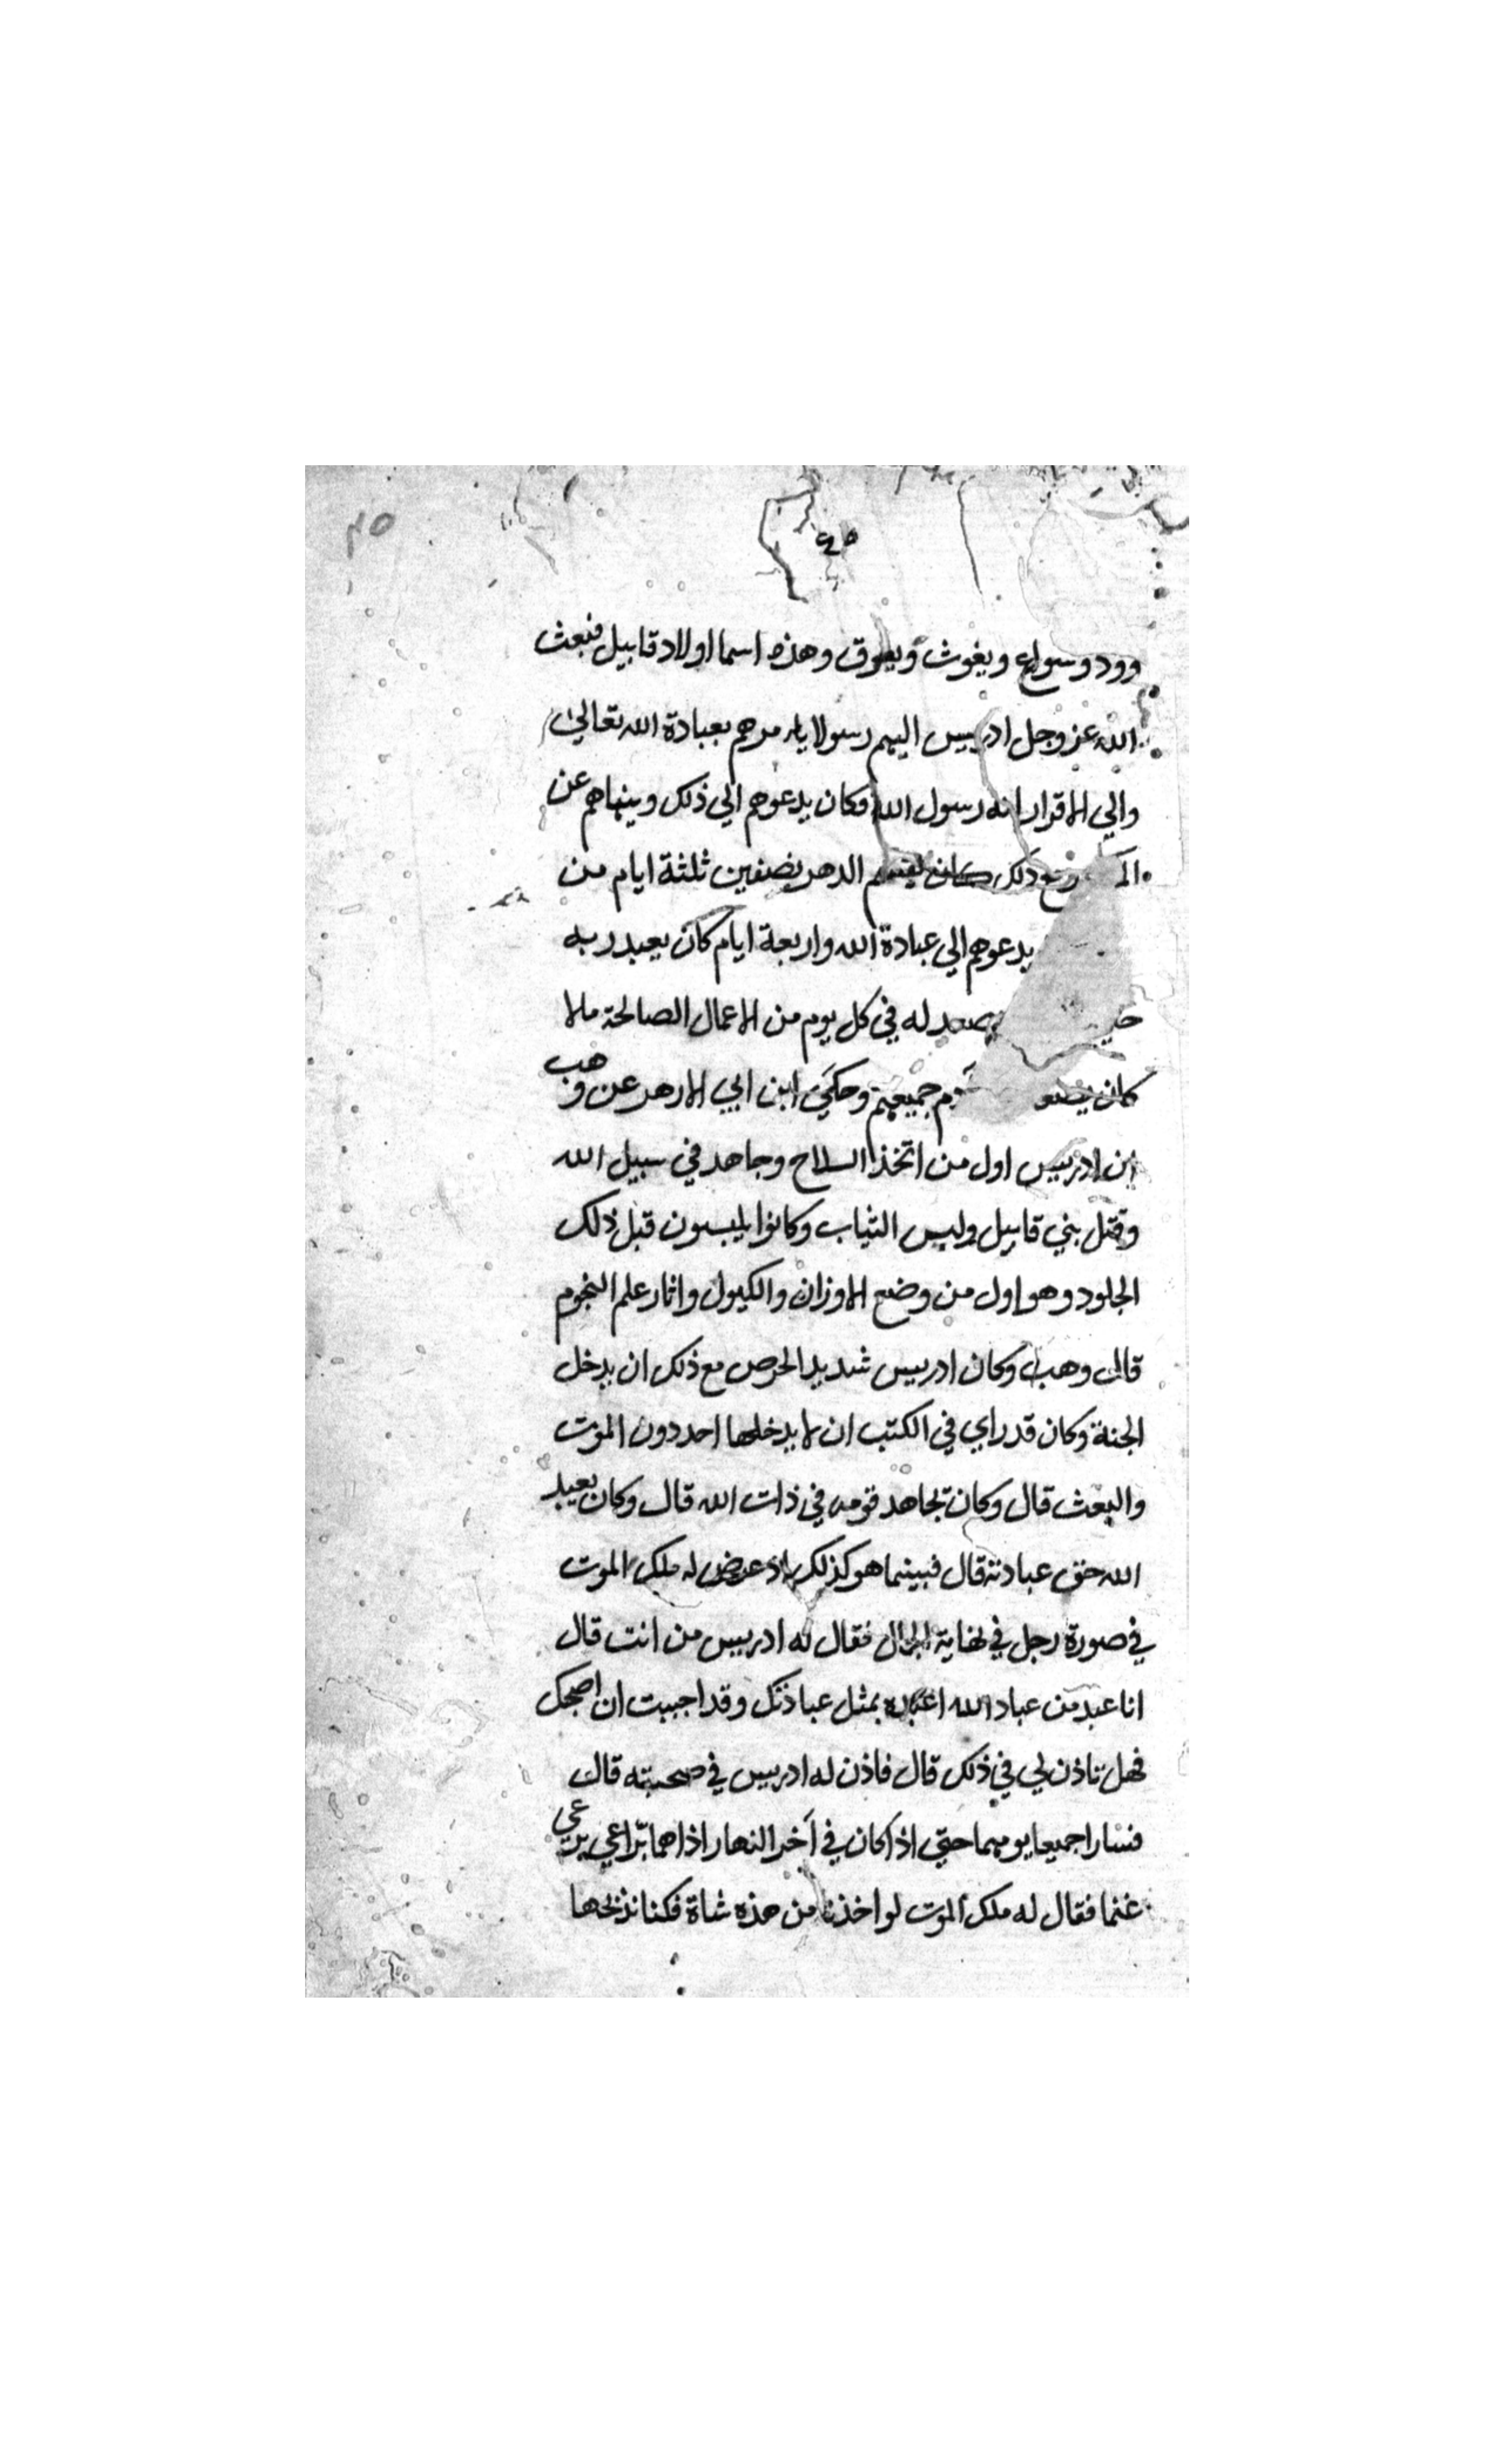 ٤٥
٤٥
وود وسواع ويغوث ويعوق وهذه اسما اولاد قابيل فبعث
الله عز وجل ادريس اليهم رسولا يامرهم بعبادة الله تعالي
والي الاقرار انه رسول الله فكان يدعوهم الي ذلك وينهاهم عن
ذلك كان يقسم الدهر نصفين ثلثة ايام من
يدعوهم الي عبادة الله واربعة ايام كان يعبد ربه
يصعد له في كل يوم من الاعمال الصالحة مالا
كان يصعد جميعهم وحكي ابن ابي الازهر عن وهب
ان ادريس اول من اتخذ السلاح وجاهد في سبيل الله
وقتل بني قابيل ولبس الثياب وكانوا يلبسون قبل ذلك
الجلود وهو اول من وضع الاوزان والكيول واثار علم النجوم
قال وهب وكان ادريس شديد الحرص مع ذلك ان يدخل
الجنة وكان قد راي في الكتب ان لا يدخلها احد دون الموت
والبعث قال وكان يجاهد قومه في ذات الله قال وكان يعبد
الله حق عبادته قال فبينما هو كذلك اذ عرض له ملك الموت
في صورة رجل في نهاية الجمال فقال له ادريس من انت قال
انا عبد من عباد الله اعبده بمثل عبادتك وقد احببت ان اصحبك
فهل تاذن لي في ذلك قال فاذن له ادريس في صحبته قال
فسارا جميعا يومهما حتي اذا كان في آخر النهار اذا هما براعي يرعي
غنما فقال له ملك الموت لو اخذنا من هذه شاة فكنا نذبحها